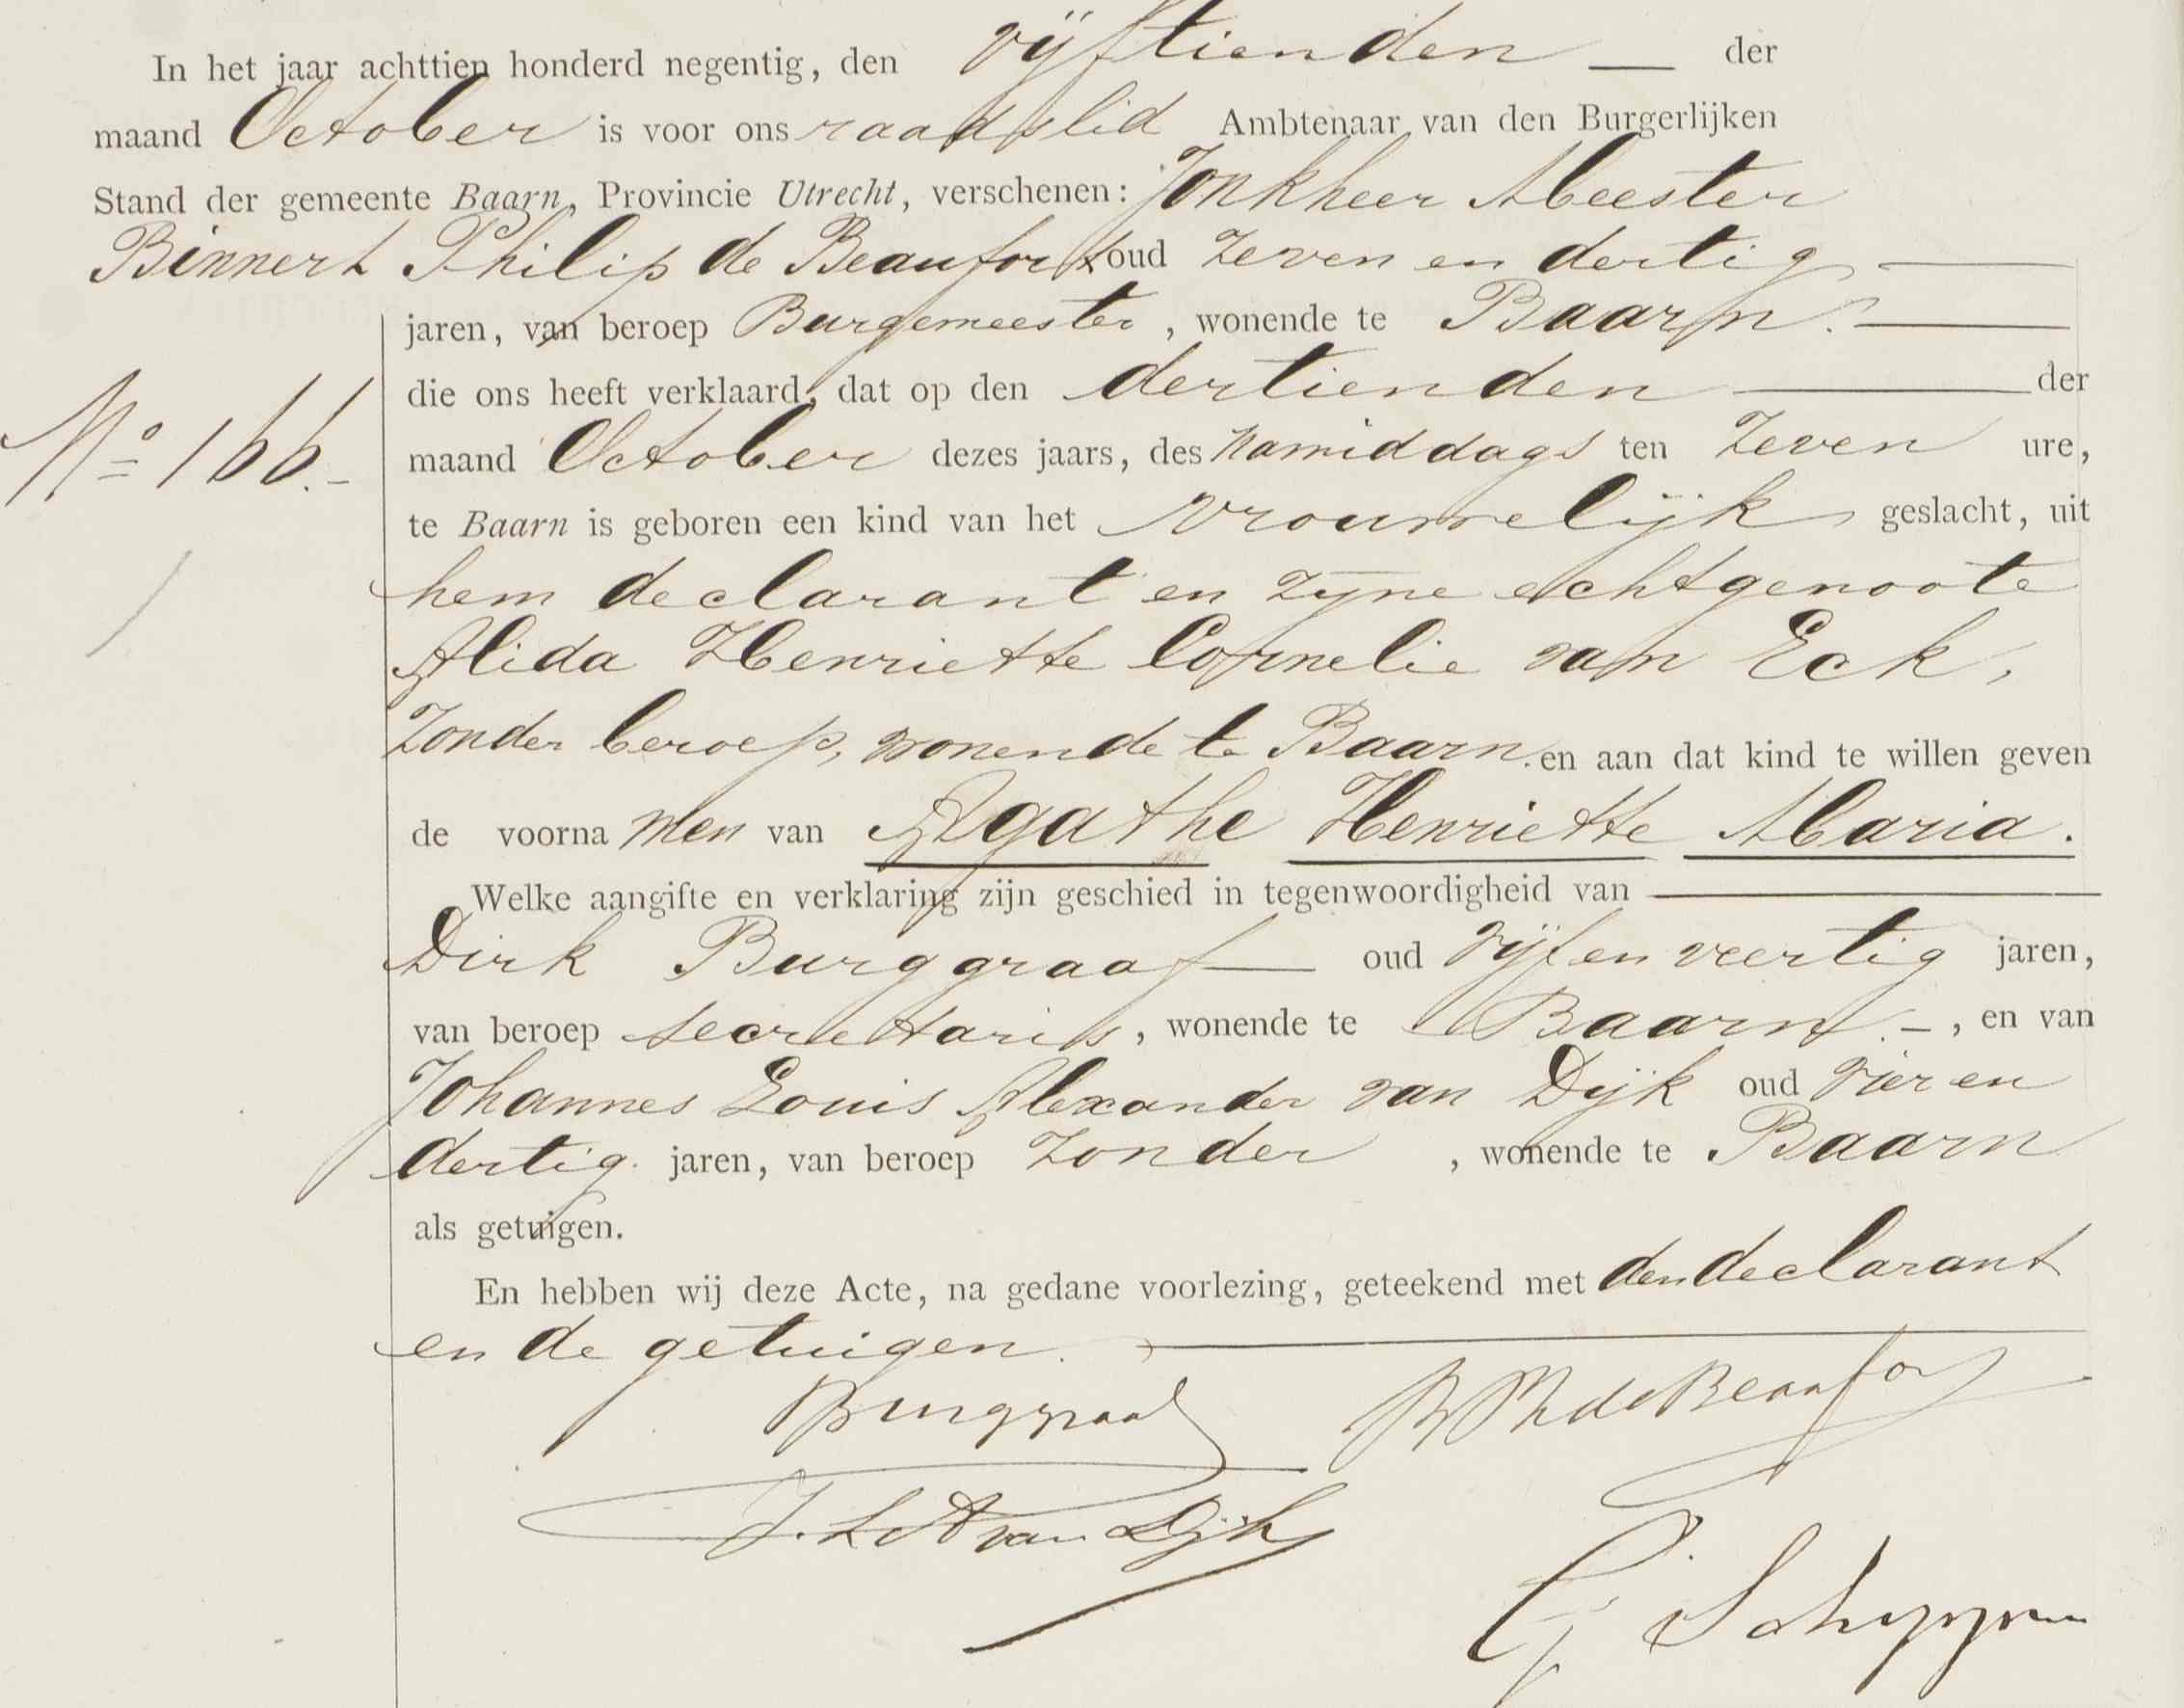 In het jaar achttien honderd negentig, den vijftienden — der
maand October is voor ons raadslid Ambtenaar van den Burgerlijken
Stand der gemeente Baarn, Provincie Utrecht, verschenen: Jonkheer Meester
Binnert Philip de Beaufort oud zeven en dertig —
jaren, van beroep Burgemeester, wonende te Baarn. —
die ons heeft verklaard, dat op den dertienden — der
maand October dezes jaars, des namiddags ten zeven ure,
No 166.-
te Baarn is geboren een kind van het vrouwelijk geslacht, uit
hem declarant en zijne echtgenoote
Alida Henriette Cornelie van Eck,
zonder beroep, wonende te Baarn. en aan dat kind te willen geven
de voornamen van Agathe Henriette Maria.
Welke aangifte en verklaring zijn geschied in tegenwoordigheid van —
Dirk Burggraaf — oud vijf en veertig jaren,
van beroep secretaris, wonende te Baarn. –, en van
Johannes Louis Alexander van Dijk oud vier en
dertig. jaren, van beroep zonder, wonende te Baarn
als getuigen.
En hebben wij deze Acte, na gedane voorlezing, geteekend met den declarant
en de getuigen. —
Burggraaf BPh de Beaufort
J. L A van Dijk